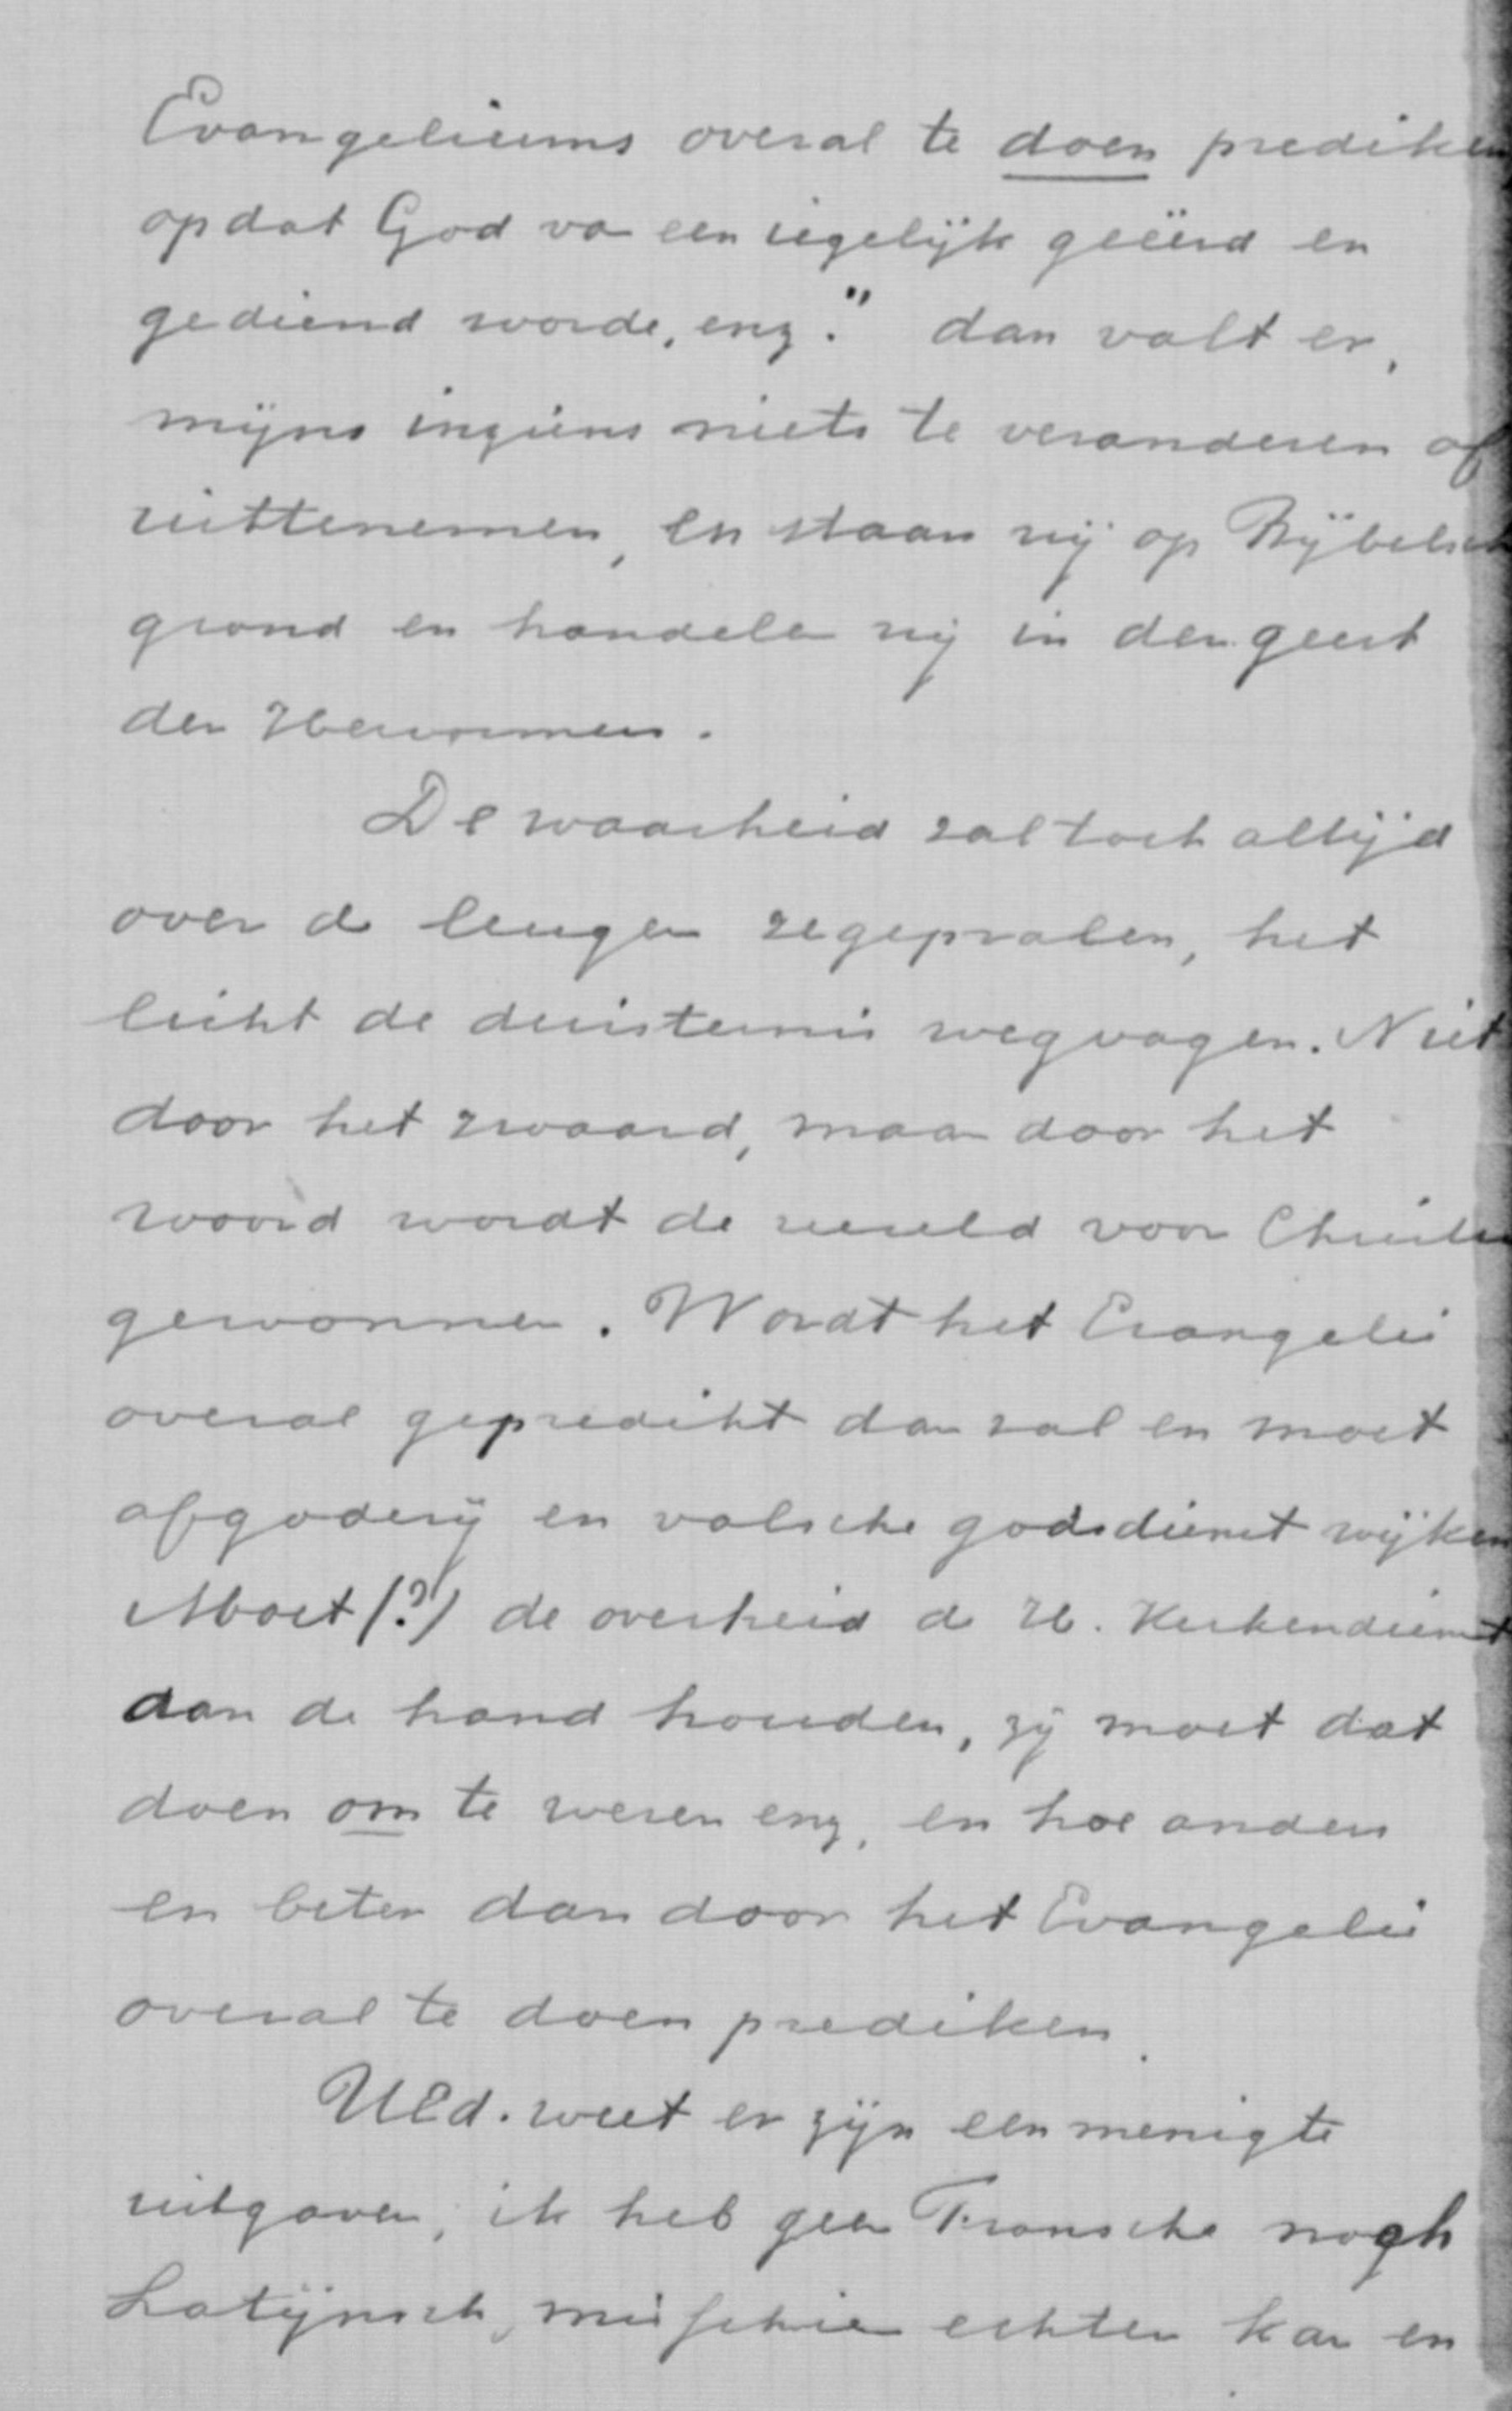 Evangeliums overal te doen prediken
opdat God va een iegelijk geëerd en
gediend worde, enz." dan valt er,
mijns inziens niets te veranderen of
uittenemen, en staan wij op Bijbelsch
grond en handelen wij in den geest
der Hervormers.
De waarheid zal toch altijd
over de leugen zegepralen, het
licht de duisternis wegvagen. Niet
door het zwaard, maar door het
woord wordt de wereld voor Christus
gewonnen. Wordt het Evangelie
overal gepredikt dan zal en moet
afgoderij en valsche godsdienst wijken
Moet (?) de overheid de H. Kerkendienst
aan de hand houden, zij moet dat
doen om te weren enz, en hoe anders
en beter dan door het Evangelie
overal te doen prediken.
UEd. weet er zijn een menigte
uitgaven, ik heb geen Fransche nogh
Latijnsch, misschien echter kan en